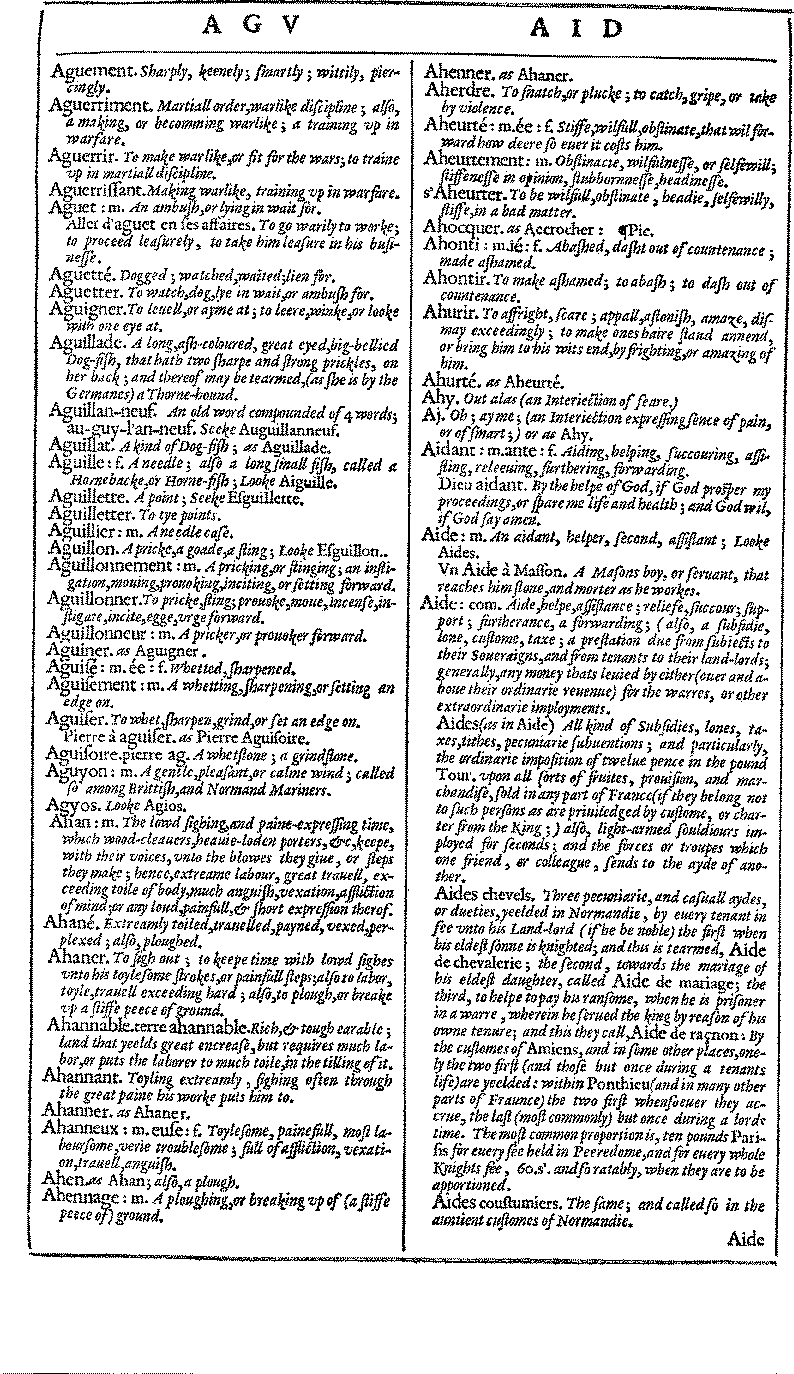 A G V
A I D
Aguement. Sharply, keenely; smartly; wittily, pier-
cingly.
Aguerriment. Martiall order, warlike discipline; also,
a making, or becomming warlike; a training up in
warfare.
Aguerrir. To make warlike, or fit for the wars; to traine
vp in martiall discipline.
Aguerrissant. Making warlike, training vp in warfare.
Aguet : m. An ambush, or lying in wait for.
Aller d'aguet en ses affaires. To go warily to worke;
to proceed leasurely, to take him leasure in his busi-
nesse.
Aguetté. Dogged; watched, waited; lien for.
Aguetter. To watch, dog, lye in wait, or ambush for.
Aguigner. To leuell, or ayme at; to leere, winke, or looke
with one eye at.
Aguillade. A long, ash-coloured, great eyed, big-bellied
Dog-fish, that hath two sharpe and strong prickles, on
her back; and thereof may be tearmed, (as she is by the
Germanes) a Thorne-hound.
Aguillan-neuf. An old word compounded of 4 words;
au-guy-l'an-neuf. Seeke Auguillanneuf.
Aguillat. A kind of Dog-fish; as Aguillade.
Aguille : f. A needle; also a long small fish, called a
Hornebacke, or Horne-fish; Looke Aiguille.
Aguillette. A point; Seeke Esguillette.
Aguilletter. To tye points.
Aguillier : m. A needle case.
Aguillon. A pricke, a goade, a sting; Looke Esguillon..
Aguillonnement : m. A pricking, or stinging; an insti-
gation, mouing, prouoking, inciting, or setting forward.
Aguillonner. To pricke, sting; prouoke, moue, incense, in-
stigate, incite, egge, vrge forward.
Aguillonneur : m. A pricker, or prouoker forward.
Aguiner. as Aguigner.
Aguisé : m. ée : f. Whetted, sharpened.
Aguisement : m. A whetting, sharpening, or setting an
edge on.
Aguiser. To whet, sharpen, grind, or set an edge on.
Pierre à aguiser. as Pierre Aguisoire.
Aguisoire. pierre ag. A whetstone; a grindstone.
Aguyon : m. A gentle, pleasant, or calme wind; called
so among Brittish, and Normand Mariners.
Agyos. Looke Agios.
Ahan : m. The lowd sighing, and paine-expressing time,
which wood-cleauers, heauie-loden porters, &c, keepe,
with their voices, vnto the blowes they giue, or steps
they make; hence, extreame labour, great trauell, ex-
ceeding toile of body, much anguish, vexation, affliction
of mind; or any loud, painfull, & short expression therof.
Ahané. Extreamly toiled, trauelled, payned, vexed, per-
plexed; also, ploughed.
Ahaner. To sigh out; to keepe time with lowd sighes
vnto his toylesome strokes, or painfull steps; also to labor,
toyle, trauell exceeding hard; also, to plough, or breake
vp a stiffe peece of ground.
Ahannable. terre ahannable. Rich, & tough earable;
land that yeelds great encrease, but requires much la-
bor, or puts the laborer to much toile, in the tilling of it.
Ahannant. Toyling extreamly, sighing often through
the great paine his worke puts him to.
Ahanner. as Ahaner.
Ahanneux : m. euse : f. Toylesome, painefull, most la-
boursome, verie troublesome; full of affliction, vexati-
on, trauell, anguish.
Ahen. as Ahan; also, a plough.
Ahennage : m. A ploughing, or breaking vp of (a stiffe
peece of) ground.
Ahenner. as Ahaner.
Aherdre. To snatch, or plucke; to catch, gripe, or take
by violence.
Aheurté : m. ée : f. Stiffe, wilfull, obstinate, that wil for-
ward how deere so euer it costs him.
Aheurtement : m. Obstinacie, wilfulnesse, or selfewill;
stiffenesse in opinion, stubbornnesse, headinesse.
s'Aheurter. To be wilfull, obstinate, headie, selfewilly,
stiffe, in a bad matter.
Ahocquer. as Accrocher : ¶Pic.
Ahonti : m. ié : f. Abashed, dasht out of countenance;
made ashamed.
Ahontir. To make ashamed; to abash; to dash out of
countenance.
Ahurir. To affright, scare; appall, astonish, amaze, dis-
may exceedingly; to make ones haire stand annend,
or bring him to his wits end, by frighting, or amazing of
him.
Ahurté. as Aheurté.
Ahy. Out alas (an Interiection of feare.)
Aj. Oh; ay me; (an Interiection expressing sence of pain,
or of smart;) or as Ahy.
Aidant : m. ante : f. Aiding, helping, succouring, assi-
sting, releeuing, furthering, forwarding.
Dieu aidant. By the helpe of God, if God prosper my
proceedings, or spare me life and health; and God wil,
if God say amen.
Aide : m. An aidant, helper, second, assistant; Looke
Aides.
Vn Aide à Masson. A Masons boy, or seruant, that
reaches him stone, and morter as he workes.
Aide : com. Aide, helpe, assistance; reliefe, succour; sup-
port; furtherance, a forwarding; (also, a subsidie,
lone, custome, taxe; a prestation due from subiects to
their Soueraigns, and from tenants to their land-lords;
generally, any money thats leuied by either (ouer and a-
boue their ordinarie reuenue) for the warres, or other
extraordinarie imployments.
Aides (as in Aide) All kind of Subsidies, lones, ta-
xes, tithes, pecuniarie subuentions; and particularly,
the ordinarie imposition of twelue pence in the pound
Tour. vpon all sorts of fruites, prouision, and mar-
chandise, sold in any part of France (if they belong not
to such persons as are priuiledged by custome, or char-
ter from the King;) also, light-armed souldiours im-
ployed for seconds; and the forces or troupes which
one friend, or colleague, sends to the ayde of ano-
ther.
Aides chevels. Three pecuniarie, and casuall aydes,
or dueties, yeelded in Normandie, by euery tenant in
fee vnto his Land-lord (if he be noble) the first when
his eldest sonne is knighted; and this is tearmed, Aide
de chevalerie; the second, towards the mariage of
his eldest daughter, called Aide de mariage; the
third, to helpe to pay his ransome, when he is prisoner
in a warre, wherein he serued the king by reason of his
owne tenure; and this they call, Aide de raçnon: By
the customes of Amiens, and in some other places, one-
ly the two first (and those but once during a tenants
life) are yeelded: within Ponthieu (and in many other
parts of Fraunce) the two first whensoeuer they ac-
crue, the last (most commonly) but once during a lords
time. The most common proportion is, ten pounds Pari-
sis for euery fee held in Peeredome, and for euery whole
Knights fee, 60. s'. and so ratably, when they are to be
apportioned.
Aides coustumiers. The same; and called so in the
auntient customes of Normandie.
Aide